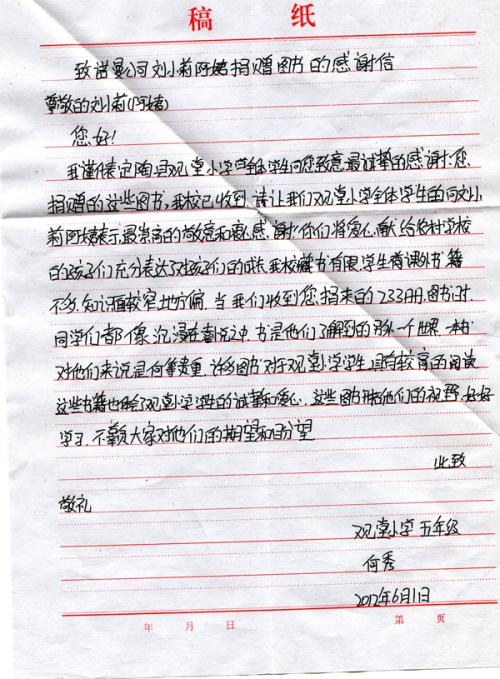 稿 纸
致诺曼公司刘小莉阿姨捐赠图书的感谢信
尊敬的刘小莉(阿姨)
您好!
我谨代表定陶县观堂小学全体学生向您致意最诚挚的感谢.您
捐赠的这些图书,我校已收到,请让我们观堂小学全体学生的向刘小
莉阿姨表示最崇高的敬意和感谢你们将爱心献给农村学校
的孩子们充分表达了对孩子们的成长我校藏书有限,学生看课外书籍
不多,知识面较窄地方偏.当我们收到您捐来的733册图书时,
同学们都像沉浸在喜悦之中.书是他们了解到的另外一个世界.一本书
对他们来说是何等贵重.许多图书对于观堂小学学生具有较高的阅读
这些书籍也给了观堂小学学生的诚挚和爱心.这些图书开拓他们的视野,好好
学习,不辜负大家对他们的期望和盼望
此致
敬礼
观堂小学 五年级
何秀
2012年6月1日
年 月 日 第 页